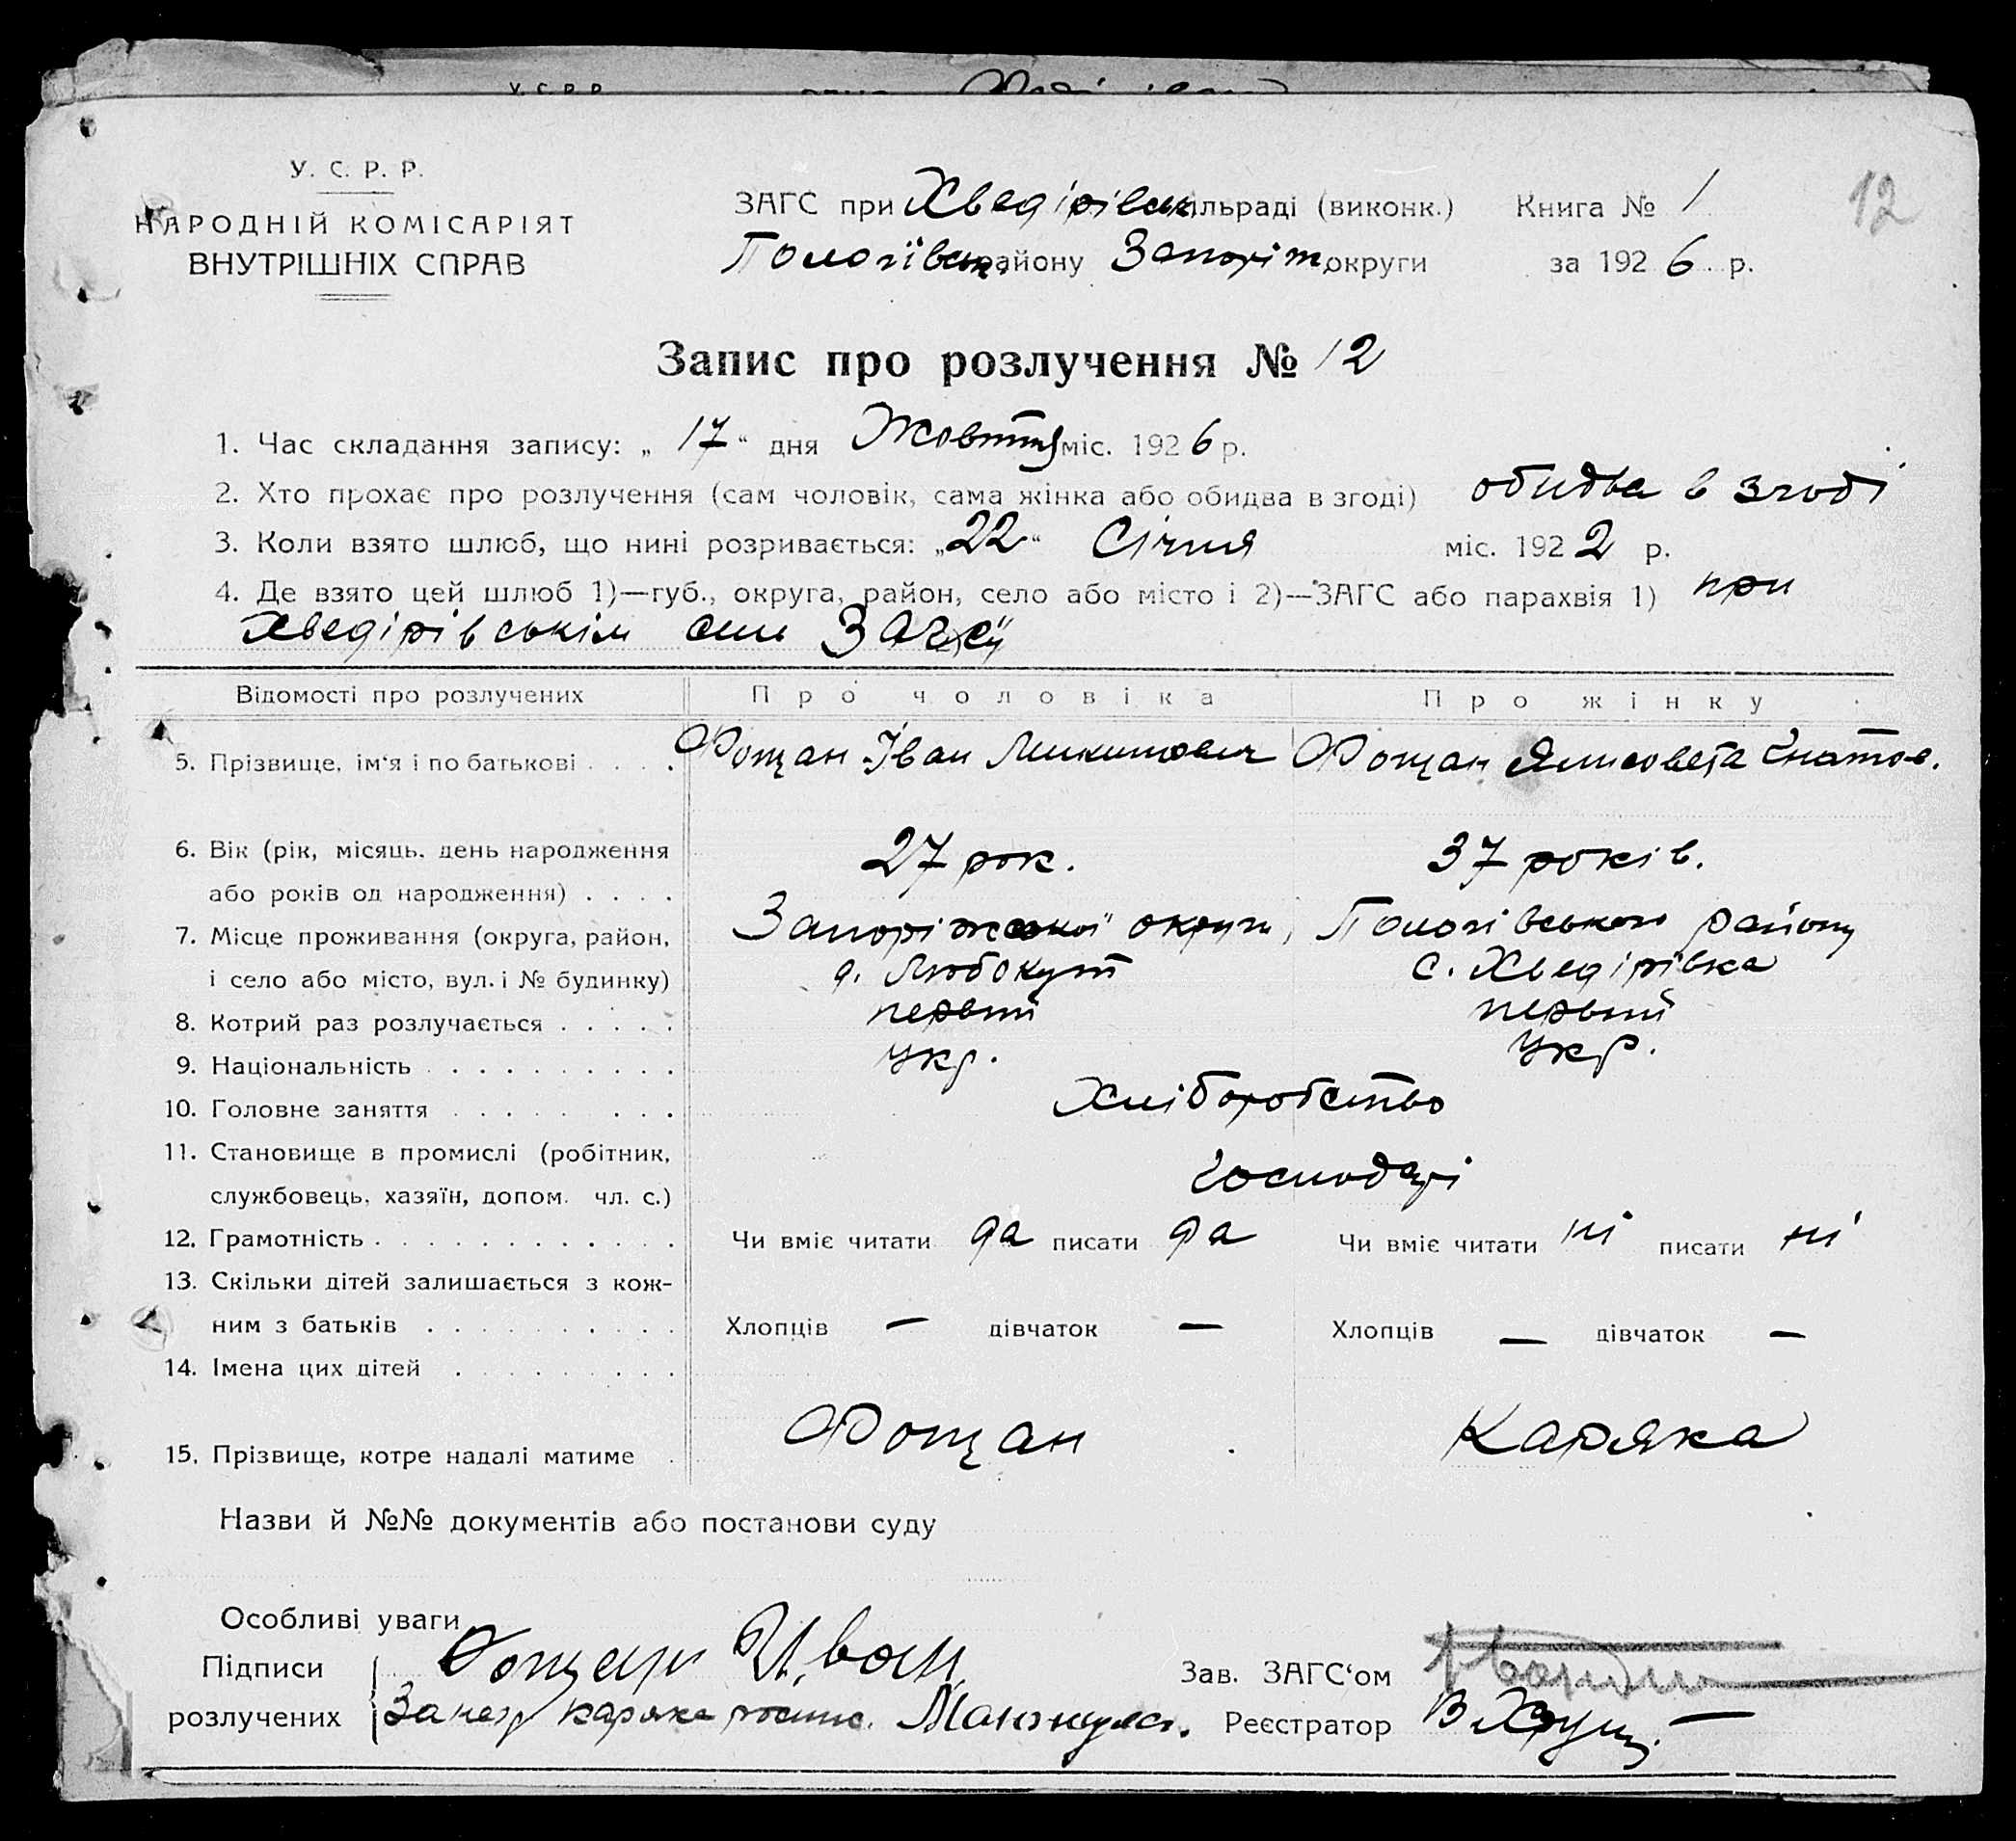 У. С. Р. Р.
НАРОДНІЙ КОМІСАРІЯТ
ВНУТРІШНІХ СПРАВ
ЗАГС при Хведірівськ. сільраді (виконк.) Книга № 1
12
Пологівськ. району Запоріж. округи за 1926 р.
Запис про розлучення № 12
1. Час складання запису: „17“ дня Жовтня міс. 1926 р.
2. Хто прохає про розлучення (сам чоловік, сама жінка або обидва в згоді) обидва в згоді
3. Коли взято шлюб, що нині розривається: „22“ Січня міс. 1922 р.
4. Де взято цей шлюб 1)—губ., округа, район, село або місто і 2)—ЗАГС або парахвія 1) при
Хведірівськім
Відомості про розлучених Про чоловіка Про жінку
5. Прізвище, ім‘я і по батькові . . . . Фощан Іван Микитович Фощан Ялисовета Гнатов.
6. Вік (рік, місяць, день народження 27 рок. 37 років.
або років од народження) . . . .
7. Місце проживання (округа, район, Запоріжської округи, Пологівського району
і село або місто, вул. і № будинку) Любокут с. Хведірівка
8. Котрий раз розлучається . . . . . первий первий
9. Національність . . . . . . . . . . Укр. Укр.
10. Головне заняття . . . . . . . . Хліборобство
11. Становище в промислі (робітник, Господарі
службовець, хазяїн, допом. чл. с.)
12. Грамотність . . . . . . . . . . . . Чи вміє читати да писати да Чи вміє читати ні писати ні
13. Скільки дітей залишається з кож-
ним з батьків . . . . . . . . . . Хлопців — дівчаток — Хлопців — дівчаток —
14. Імена цих дітей . . . . . . . . .
15. Прізвище, котре надалі матиме . Фощан Каряка
Назви й №№ документів або постанови суду
Особливі уваги
Підписи Фощан Иван Зав. ЗАГС‘ом
розлучених За негр Каряка роспис. Реєстратор